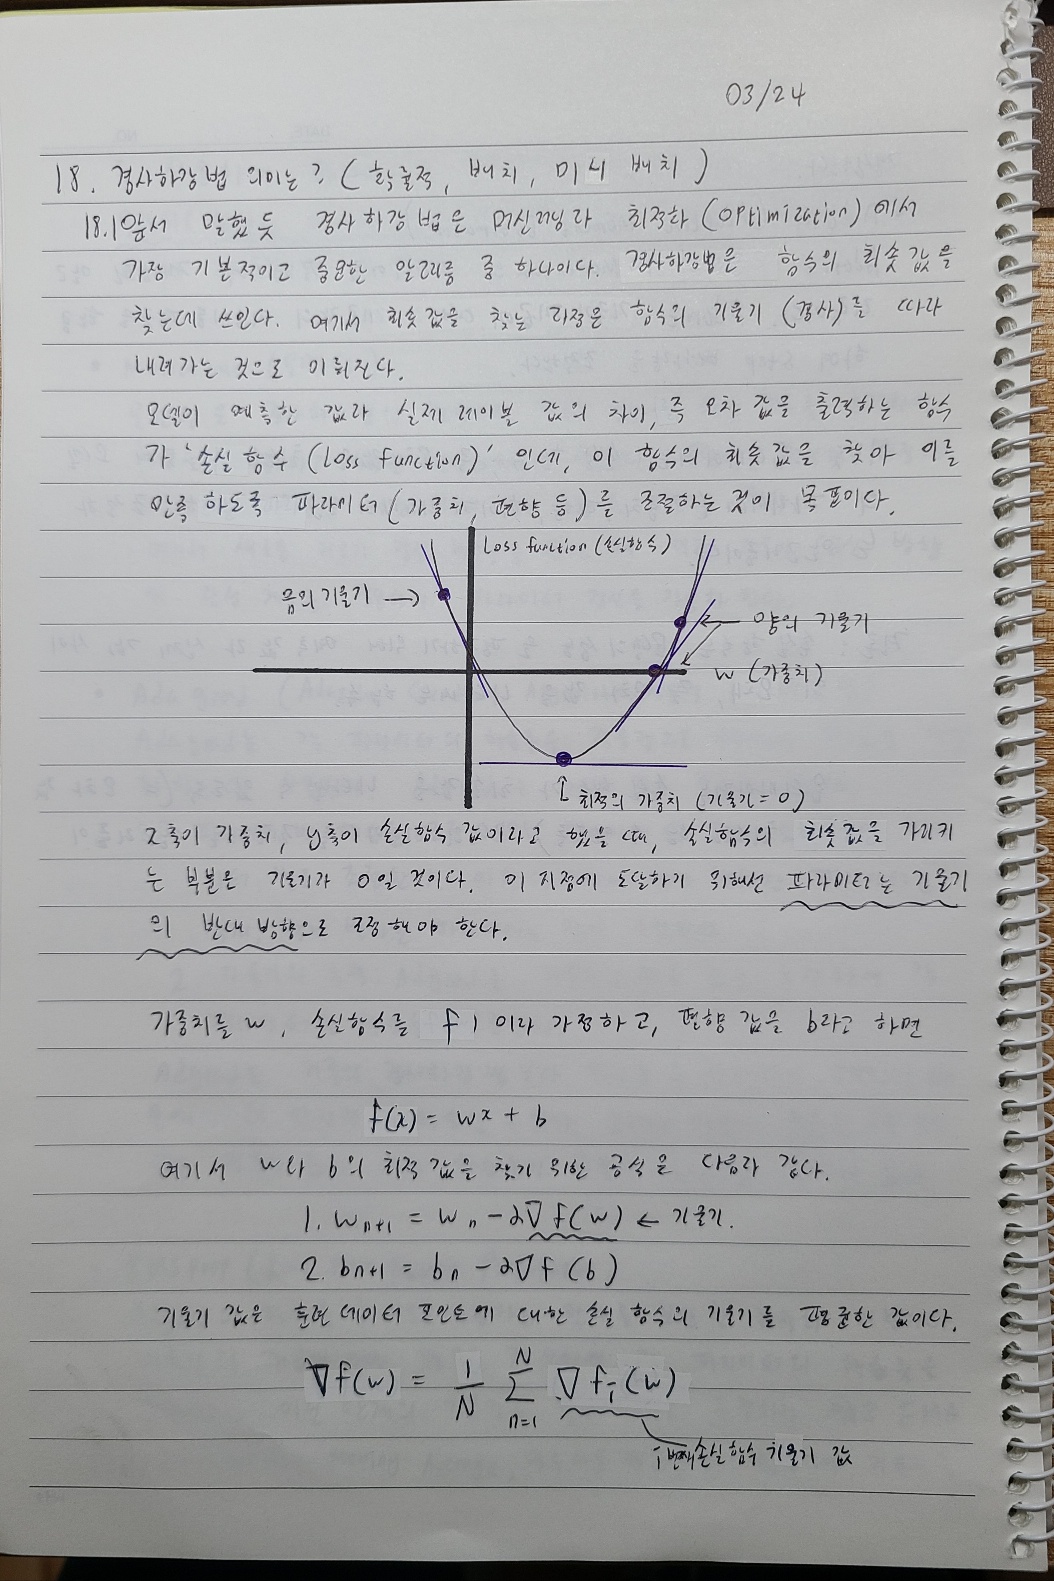 03/24
18. 경사하강법 의미는? (확률적, 배치, 미니 배치)
18.1 앞서 말했듯 경사하강법은 머신러닝과 최적화(optimization)에서
가장 기본적이고 중요한 알고리즘 중 하나이다. 경사하강법은 함수의 최솟값을
찾는데 쓰인다. 여기서 최솟값을 찾는 과정은 함수의 기울기(경사)를 따라
내려가는 것으로 이뤄진다.
모델이 예측한 값과 실제 레이블 값의 차이, 즉 오차 값을 출력하는 함수
가 '손실 함수(Loss function)' 인데, 이 함수의 최솟값을 찾아 이를
만족하도록 파라미터(가중치, 편향 등)를 조절하는 것이 목표이다.
Loss function (손실함수)
음의 기울기 →
← 양의 기울기
w (가중치)
↑ 최적의 가중치 (기울기 = 0)
x축이 가중치, y축이 손실함수 값이라고 했을 때, 손실함수의 최솟값을 가리키
는 부분은 기울기가 0일 것이다. 이 지점에 도달하기 위해선 파라미터는 기울기
의 반대 방향으로 조정해야 한다.
가중치를 w, 손실함수를 f 이라 가정하고, 편향 값을 b라고 하면
f(x) = wx + b
여기서 w와 b의 최적 값을 찾기 위한 공식은 다음과 같다.
1. wₙ₊₁ = wₙ - α∇f(w) ← 기울기.
2. bₙ₊₁ = bₙ - α∇f(b)
기울기 값은 훈련 데이터 포인트에 대한 손실 함수의 기울기를 평균한 값이다.
∇f(w) = 1/N N∑n=1 ∇fᵢ(w)
i번째 손실함수 기울기 값